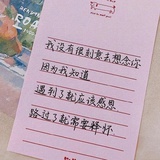 我没有很刻意去想念你
因为我知道
遇到了就应该感恩
路过了就需要释怀